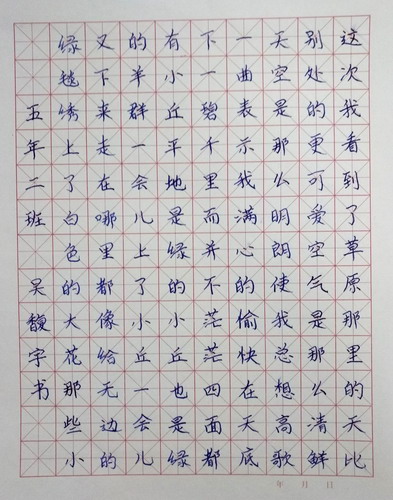 这次我看到了草原那里的天比
别处的更可爱空气是那么清鲜
天空是那么明朗使我总想高歌
一曲表示我满心的愉快在天底
下一碧千里而并不茫茫四面都
有小丘平地是绿的小丘也是绿
的羊群一会儿上了小丘一会儿
又下来走在哪里都像给无边的
绿毯绣上了白色的大花那些小
五年二班 吴馥宇书
年 月 日